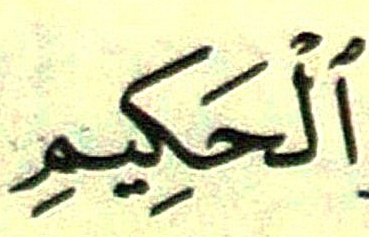 ٱلْحَكِيمِ